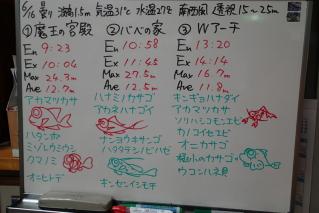 6/16 曇り 波高1.5m 気温31℃ 水温27℃ 南西風 透視15~25m
①魔王の宮殿
En 9:23
Ex 10:06
Max 24.3m
Ave 12.7m
アカマツカサ
ハタンポ
ミゾレウミウシ
クマノミ
オニヒトデ
②パパの家
En 10:58
Ex 11:45
Max 27.5m
Ave 12.5m
ハナミノカサゴ
アカネハナゴイ
ナンヨウキサンゴ
ハタタテシノビハゼ
キンセンイシモチ
③Wアーチ
En 13:20
Ex 14:14
Max 16.7m
Ave 11.8m
キンギョハナダイ
アカマツカサ
ソリハシコモンエビ
カノコイセエビ
オニカサゴ
ウコンハネ貝